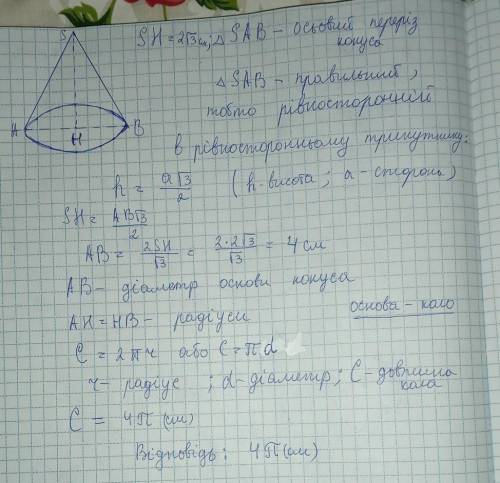 S
A
H
B
SH = 2√3 см; △ SAB - осьовий переріз
конуса
△ SAB - правильний,
тобто рівносторонній
в рівносторонньому трикутнику:
h = a√3/2 (h-висота; a-сторона)
SH = AB√3/2
AB = 2SH/√3 = 2·2√3/√3 = 4 см
AB - діаметр основи конуса
AH = HB - радіуси
основа - коло
C = 2πr або C = πd
r - радіус ; d-діаметр; C-довжина
кола
C = 4π (см)
Відповідь: 4π (см)